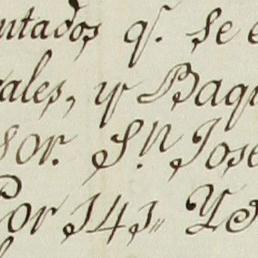 ntados q.^ se e
ales, y Baqu
sor. S.n Jose
Por 141,, Y